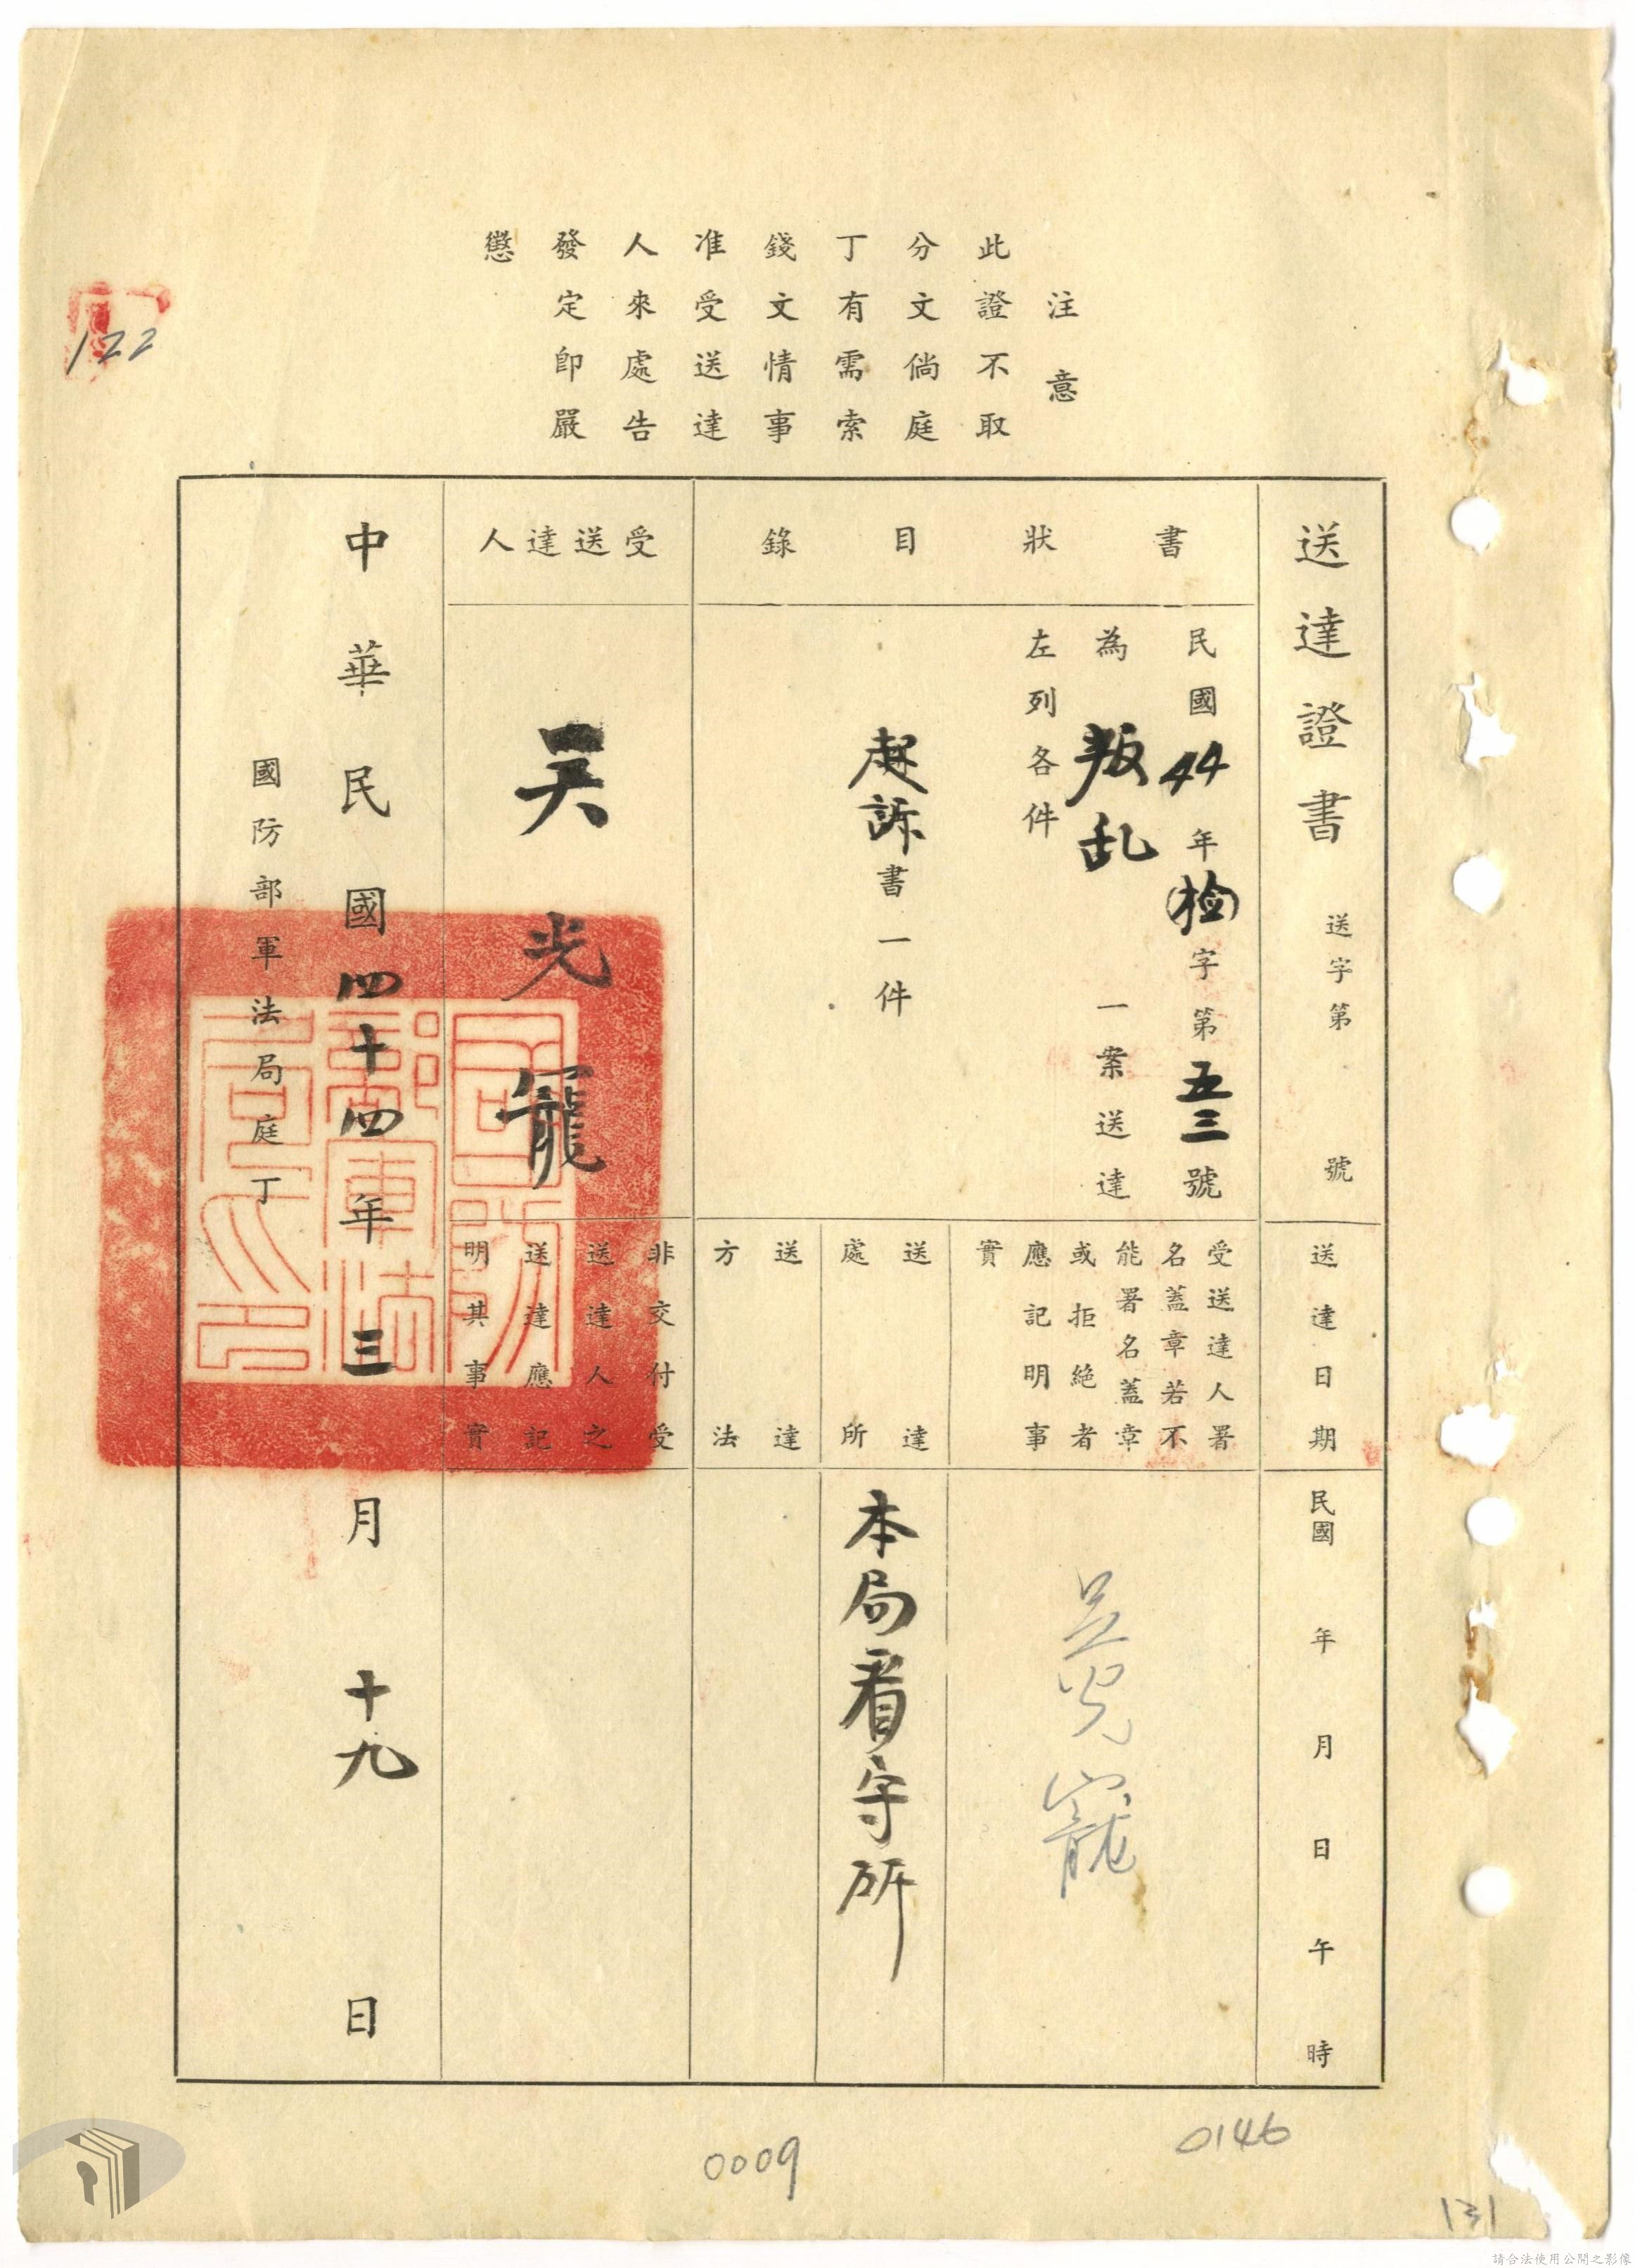 注意
此證不取
分文倘庭
丁有需索
錢文情事
准受送達
人來處告
發定即嚴
懲
122
送達證書 送字第 號
書狀目錄
民國44年(檢)字第五三號
為叛乱一案送達
左列各件
起訴書一件
受送達人
吴光寵
送達日期
民國 年 月 日 午 時
受送達人署
名蓋章若不
能署名蓋章
或拒絕者
應記明事
實
吴光寵
送達
處所
本局看守所
送達
方法
非交付受
送達人之
送達應記
明其事實
中華民國四十四年三月十九日
國防部軍法局庭丁
國防
部軍法
局之印
0146
0009
131
請合法使用公開之影像